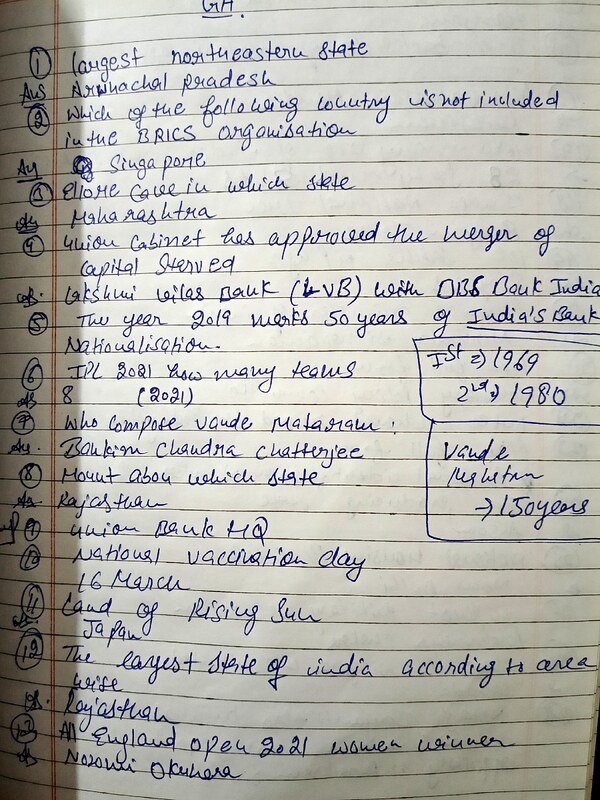 GA.
① Largest northeastern state
Ans Arunachal pradesh
② which of the following country is not included
in the BRICS organisation
Ans Singapore
③ Ellore cave in which state
Ans Maharashtra
④ Union Cabinet has approved the merger of
Capital Starved
Ans. Lakshmi vilas Bank (LVB) with DBS Bank India
⑤ The year 2019 marks 50 years of India's Bank
Nationalisation.
1st ⇒ 1969
2nd ⇒ 1980
⑥ IPL 2021 how many teams
Ans 8 (2021)
⑦ who compose vande mataram.
Ans. Bankim Chandra Chatterjee
Vande
→ 150 years
⑧ Mount abou which state
Ans Rajasthan
⑨ Union Bank HQ
⑩ National vaccination day
16 March
⑪ Land of Rising Sun
Ans. Japan
⑫ The largest state of india according to area
wise
Ans. Rajasthan
⑬ All England open 2021 women winner
Ans Nozomi Okuhara